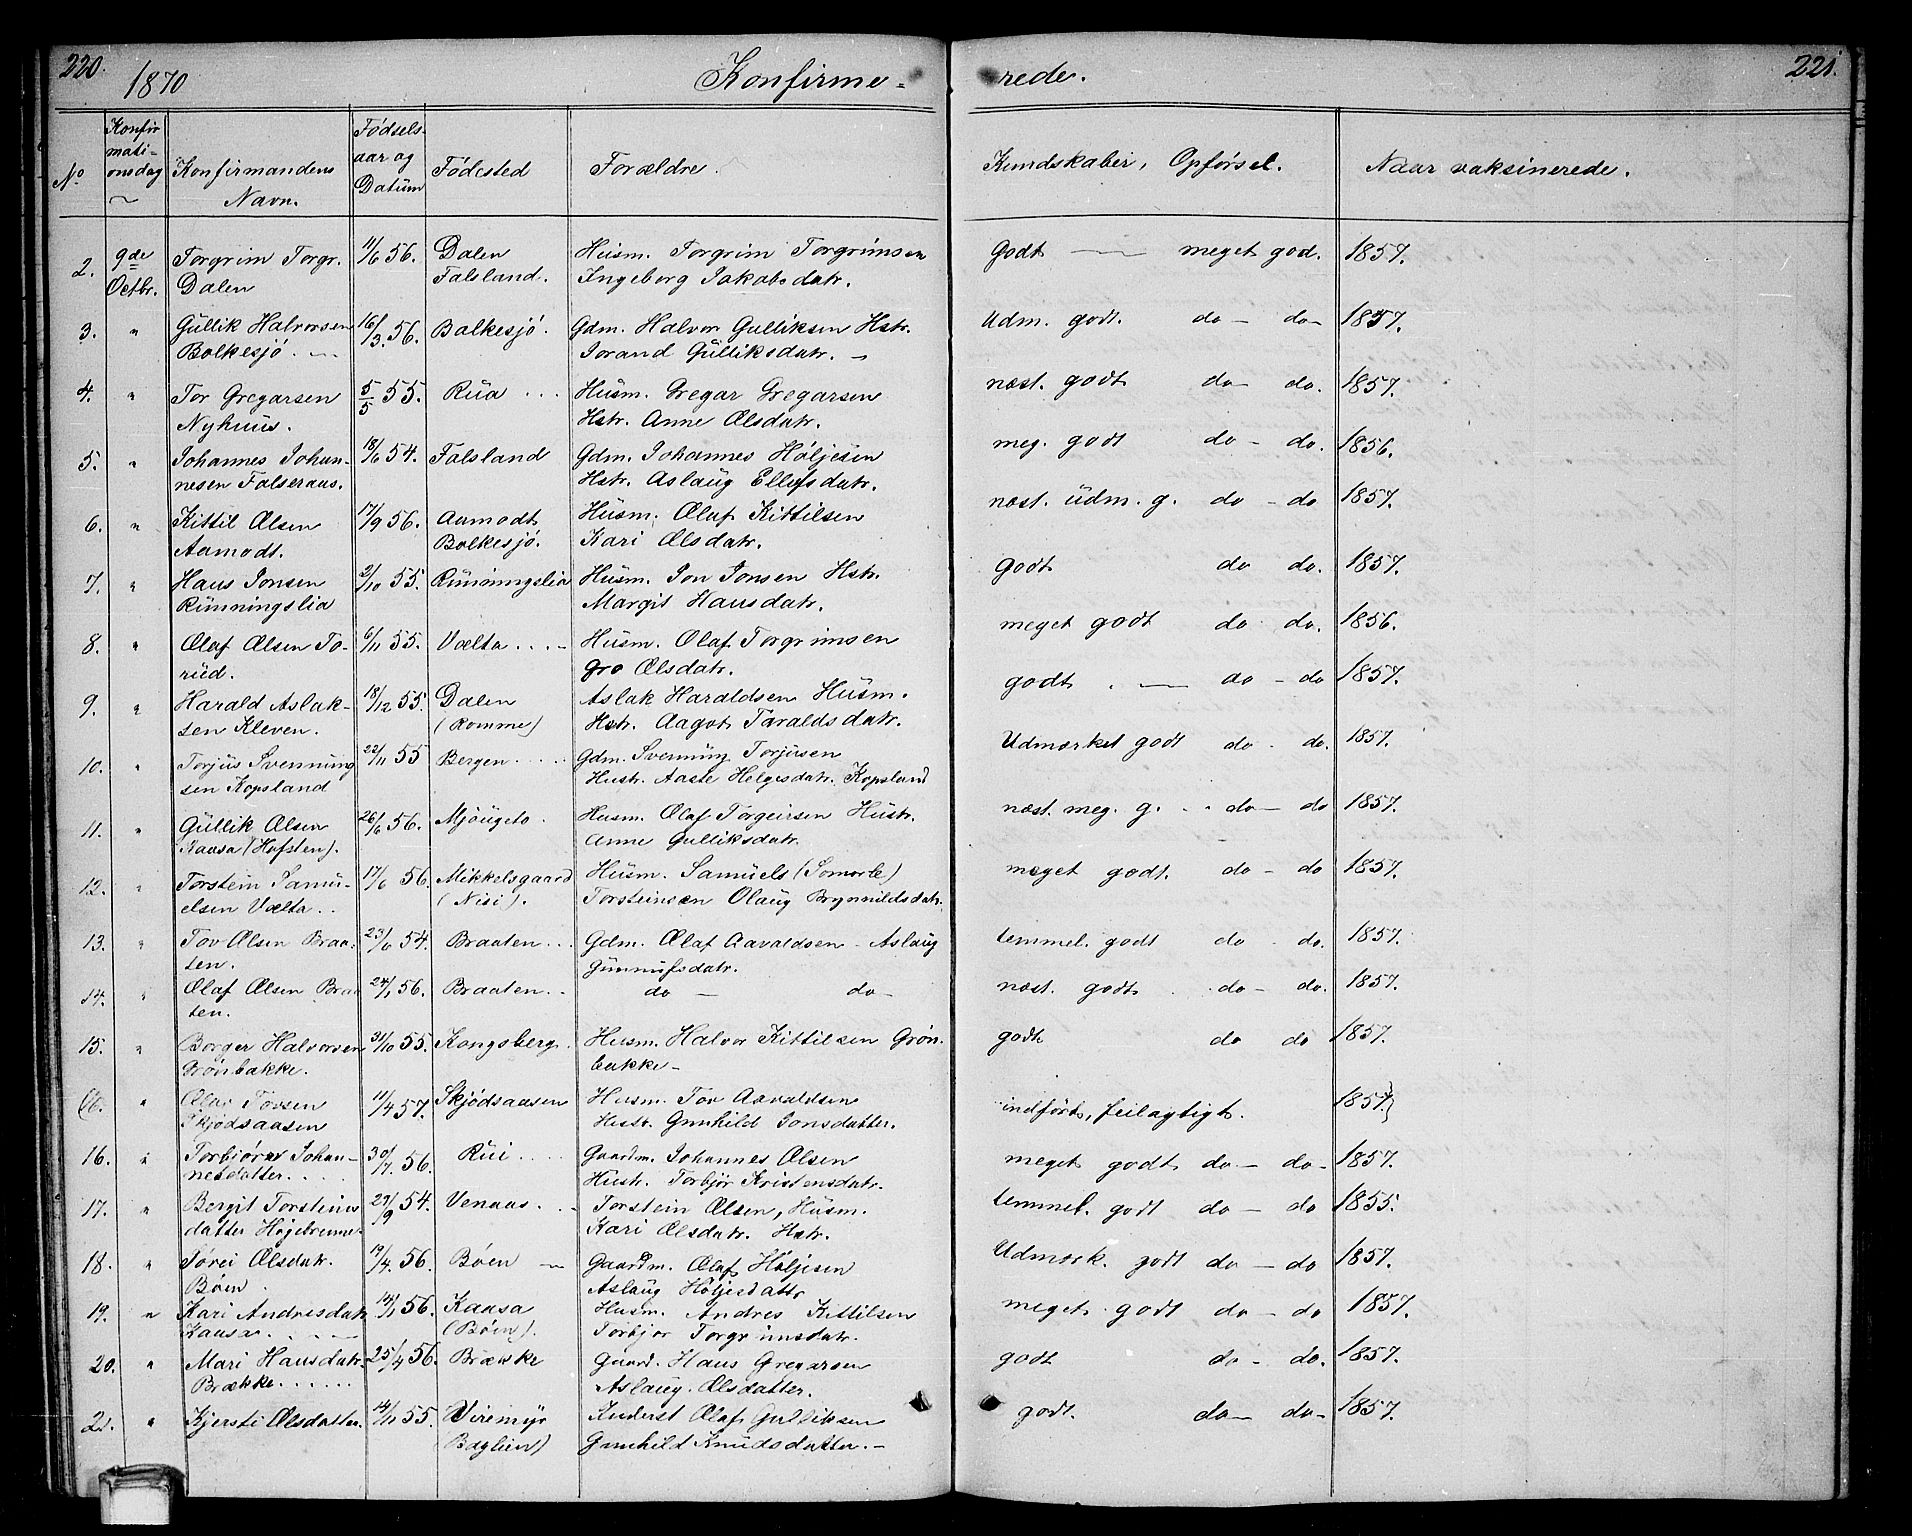 220.
1870
Konfirme-
rede.
221.
No
Konfir
mati-
onsdag
Konfirmandens
Navn.
Fødsels-
aar og
Datum
Fødested
Forældre.
Kundskaber, Opførsel.
Naar vaksinerede.
2. 9de Torgrim Torgr. 11/6 56. Dalen Husm. Torgrim Torgrimsen Godt — meget god. 1857.
Octbr. Dalen Falsland. Ingeborg Jakobsdatr.
3. " Gullik Halvorsen 16/3. 56. Bolkesjö. Gdm. Halvor Gulliksen Hstr. Udm. godt. do — do — 1857.
Bolkesjö. — Jorand Gulliksdatr. —
4. " Tor Gregarsen 5/5 55. Rua . . . Husm. Gregar Gregarsen næst. godt do — do. 1857.
Nyhuus. Hstr. Anne Olsdatr.
5. " Johannes Johan- 18/6 54. Falsland Gdm. Johannes Höljesen meg. godt do — do. 1856.
nesen Falseraas. Hstr. Aslaug Ellefsdatr.
6. " Kittil Olsen 17/9 56. Aamodt Husm. Olaf Kittilsen næst. udm. g. do — do 1857.
Aamodt. Bolkesjö. Kari Olsdatr.
7. " Hans Jonsen 2/10 55. Runningslia Husm. Jon Jonsen Hstr. godt do do. 1857.
Runningslia Margit Hansdatr.
8. " Olaf Olsen To- 6/11 55. Vælta . . . — Husm. Olaf Torgrimsen meget godt do do. 1856.
rud. Gro Olsdatr.
9. " Harald Aslak- 18/12 55. Dalen Aslak Haraldsen Husm. godt . — do — do 1857.
sen Kleven. (Romme) Hstr. Aagot Taraldsdatr.
10. " Torjus Svenning 22/11 55 Bergen . . . . Gdm. Svenning Torjusen Udmærket godt do . do. 1857.
sen Kopsland Hustr. Aaste Helgesdatr. Kopsland
11. " Gullik Olsen 26/6 56. Mjöugeto . Husm. Olaf Torgeirsen Hustr. næst. meg. g. . . do — do 1857.
Kaasa (Hofsten). Anne Gulliksdatr.
12. " Torstein Samu- 17/6 56. Mikkelsgaard Husm. Samuels (Somorle) meget godt. do — do 1857.
elsen Vælta . . (Nisi). Torsteinsen Olaug Brynnildsdatr.
13. " Tov Olsen Braa- 23/6 54. Braaten . . . Gdm. Olaf Aavaldsen — Aslaug temmel. godt do . do. 1857.
ten. Gunnufsdatr.
14. " Olaf Olsen Braa 24/1 56. Braaten. . . do — do — næst. godt . . do — do. 1857.
ten.
15. " Borger Halvorsen 31/10 55. Kongsberg. Husm. Halvor Kittilsen Grön- godt do do 1857.
Grönbakke. bakke —
(16. " Olav Tovsen 11/4 57. Skjödsaasen Husm. Tov Aavaldsen indfört, feilagtigt. 1857.)
Skjödsaasen Hustr. Gunhild Jonsdatter.
16. " Torbjörer Johan- 30/7. 56. Rui . . . . Gaardm. Johannes Olsen meget godt do — do — 1857.
nesdatter . . . . Hustr. Torbjör Kristensdatr.
17. " Bergit Torsteins 29/9 54. Venaas . . . Torstein Olsen, Husm. temmel. godt do — do 1855.
datter Höjebrenne Kari Olsdatr. Hstr.
18. " Sörei Olsdatr. 19/4. 56. Böen — Gaardm. Olaf Höljesen Udmærk. godt do — do 1857.
Böen . Aslaug Höljesdattr
19. " Kari Andresdatr 14/1 56. Kaasa Husm. Andres Kittilsen meget godt do — do 1857.
Kaasa . . . . (Böen). Torbjor Torgrimsdatr.
20. " Mari Hansdatr. 25/4 56. Brække Gaard. Hans Gregarsen godt do — do. 1857.
Brække . . . . . . Aslaug. Olsdatter.
21. " Kjersti Olsdatter. 14/11 55. Viremyr Inderst Olaf Gulliksen godt. do — do — 1857.
(Boglien) Gunhild Knudsdatter. —